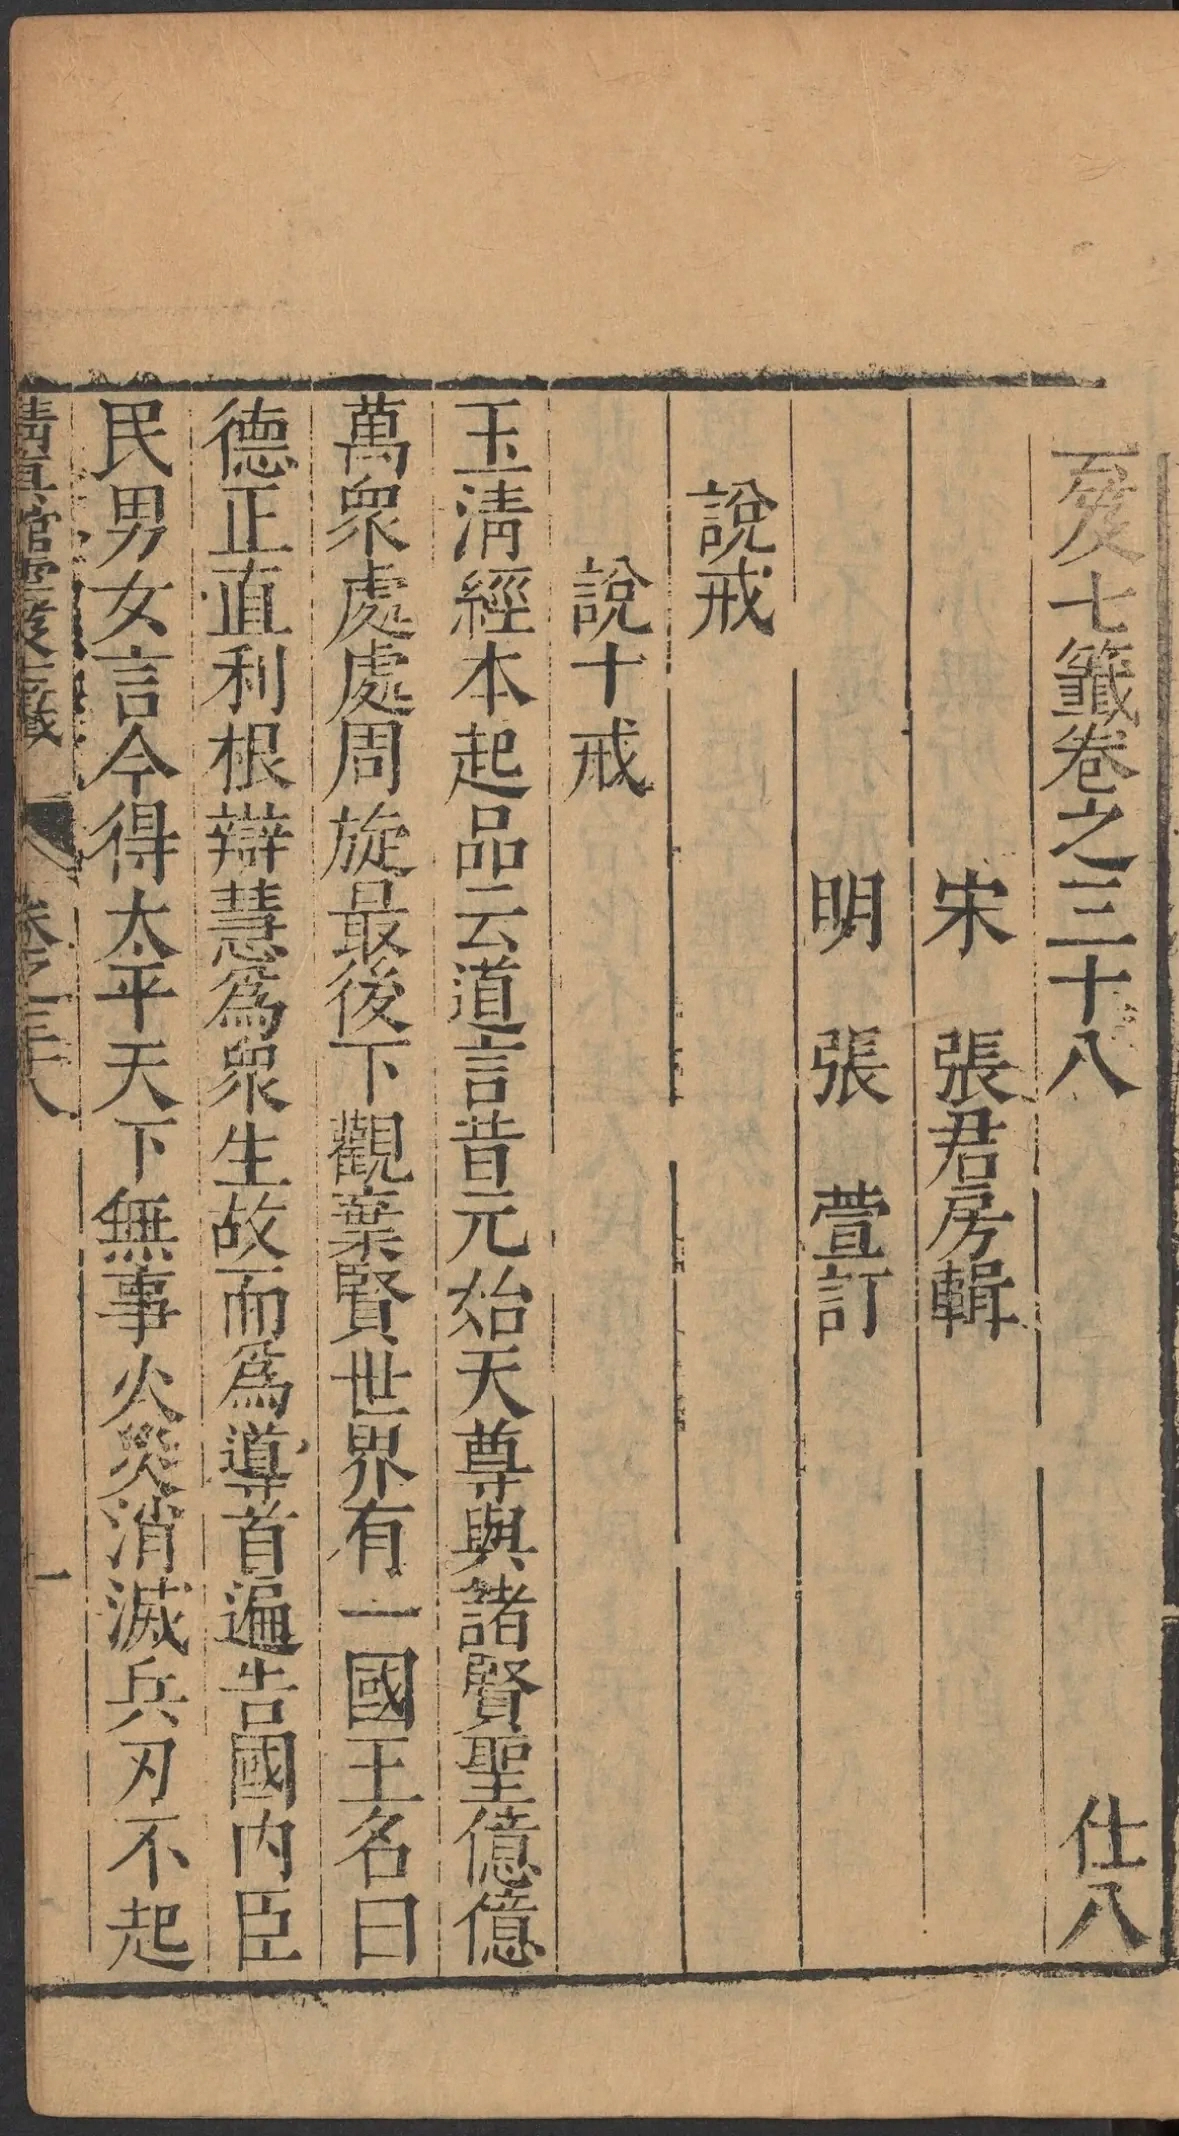 笈七籤卷之三十八　仕八
宋　張君房輯
明　張　萱訂
說戒
說十戒
玉清經本起品云道言昔元始天尊與諸賢聖億億
萬衆處處周旋最後下觀棄賢世界有一國王名曰
德正直利根辯慧爲衆生故而爲導首遍告國內臣
民男女言今得太平天下無事火災消滅兵刃不起
清真館雲笈七籤　卷之三十八　一